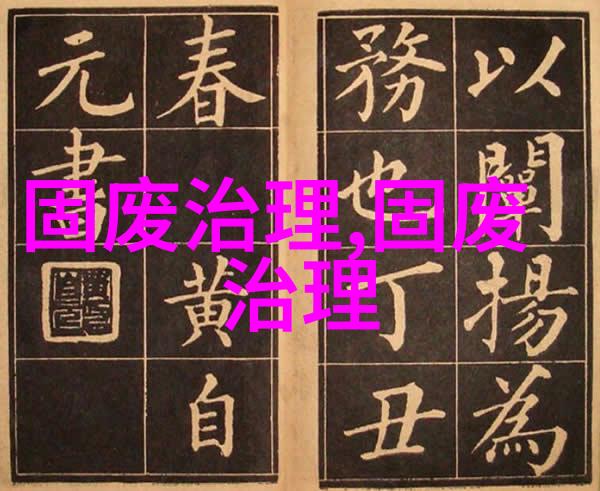 固废治理,固废
治理
以闡揚為
務也丁丑
春 黄自
元書